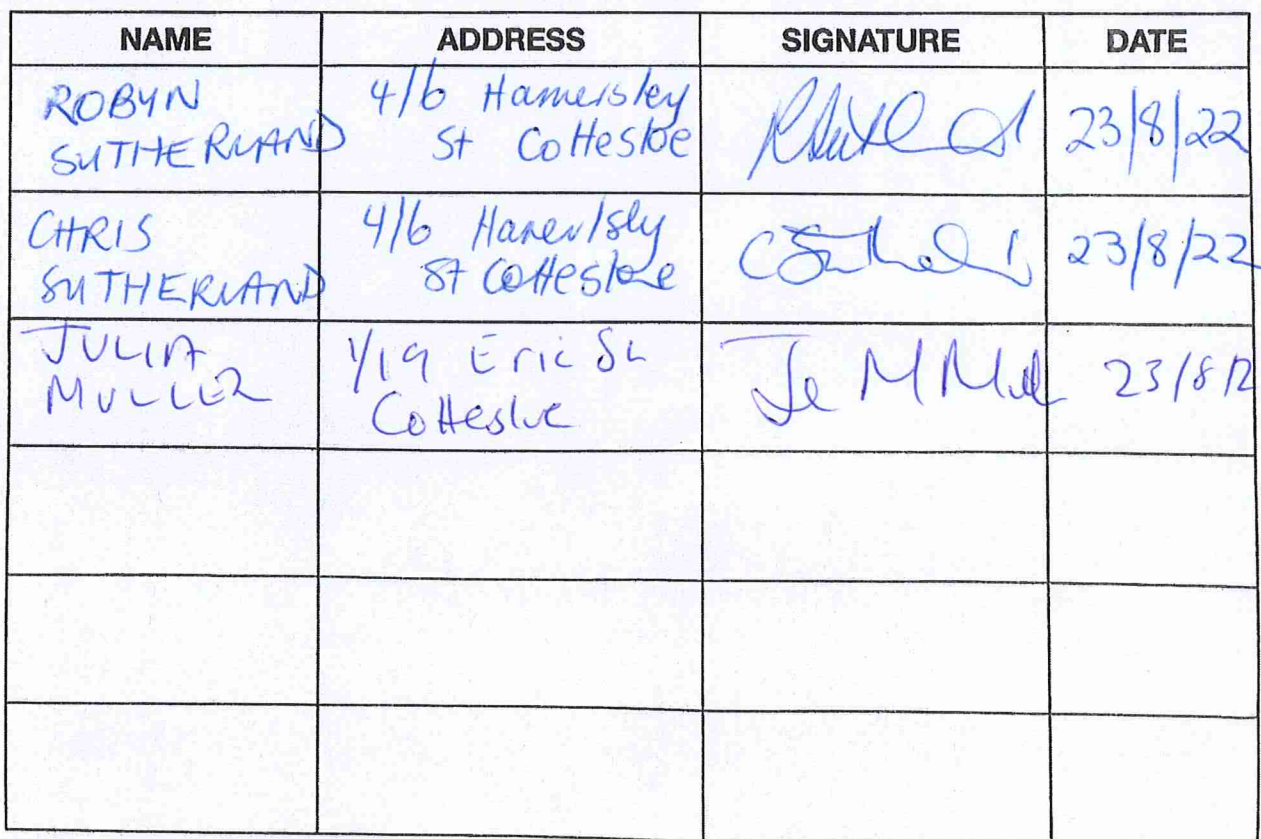 NAME ADDRESS SIGNATURE DATE
ROBYN
SUTHERLAND
4/6 Hamersley
St Cottesloe
23/8/22
CHRIS
SUTHERLAND
4/6
St Cottesloe
23/8/22
JULIA
MULLER
1/19 Eric St
Cottesloe
23/8/2